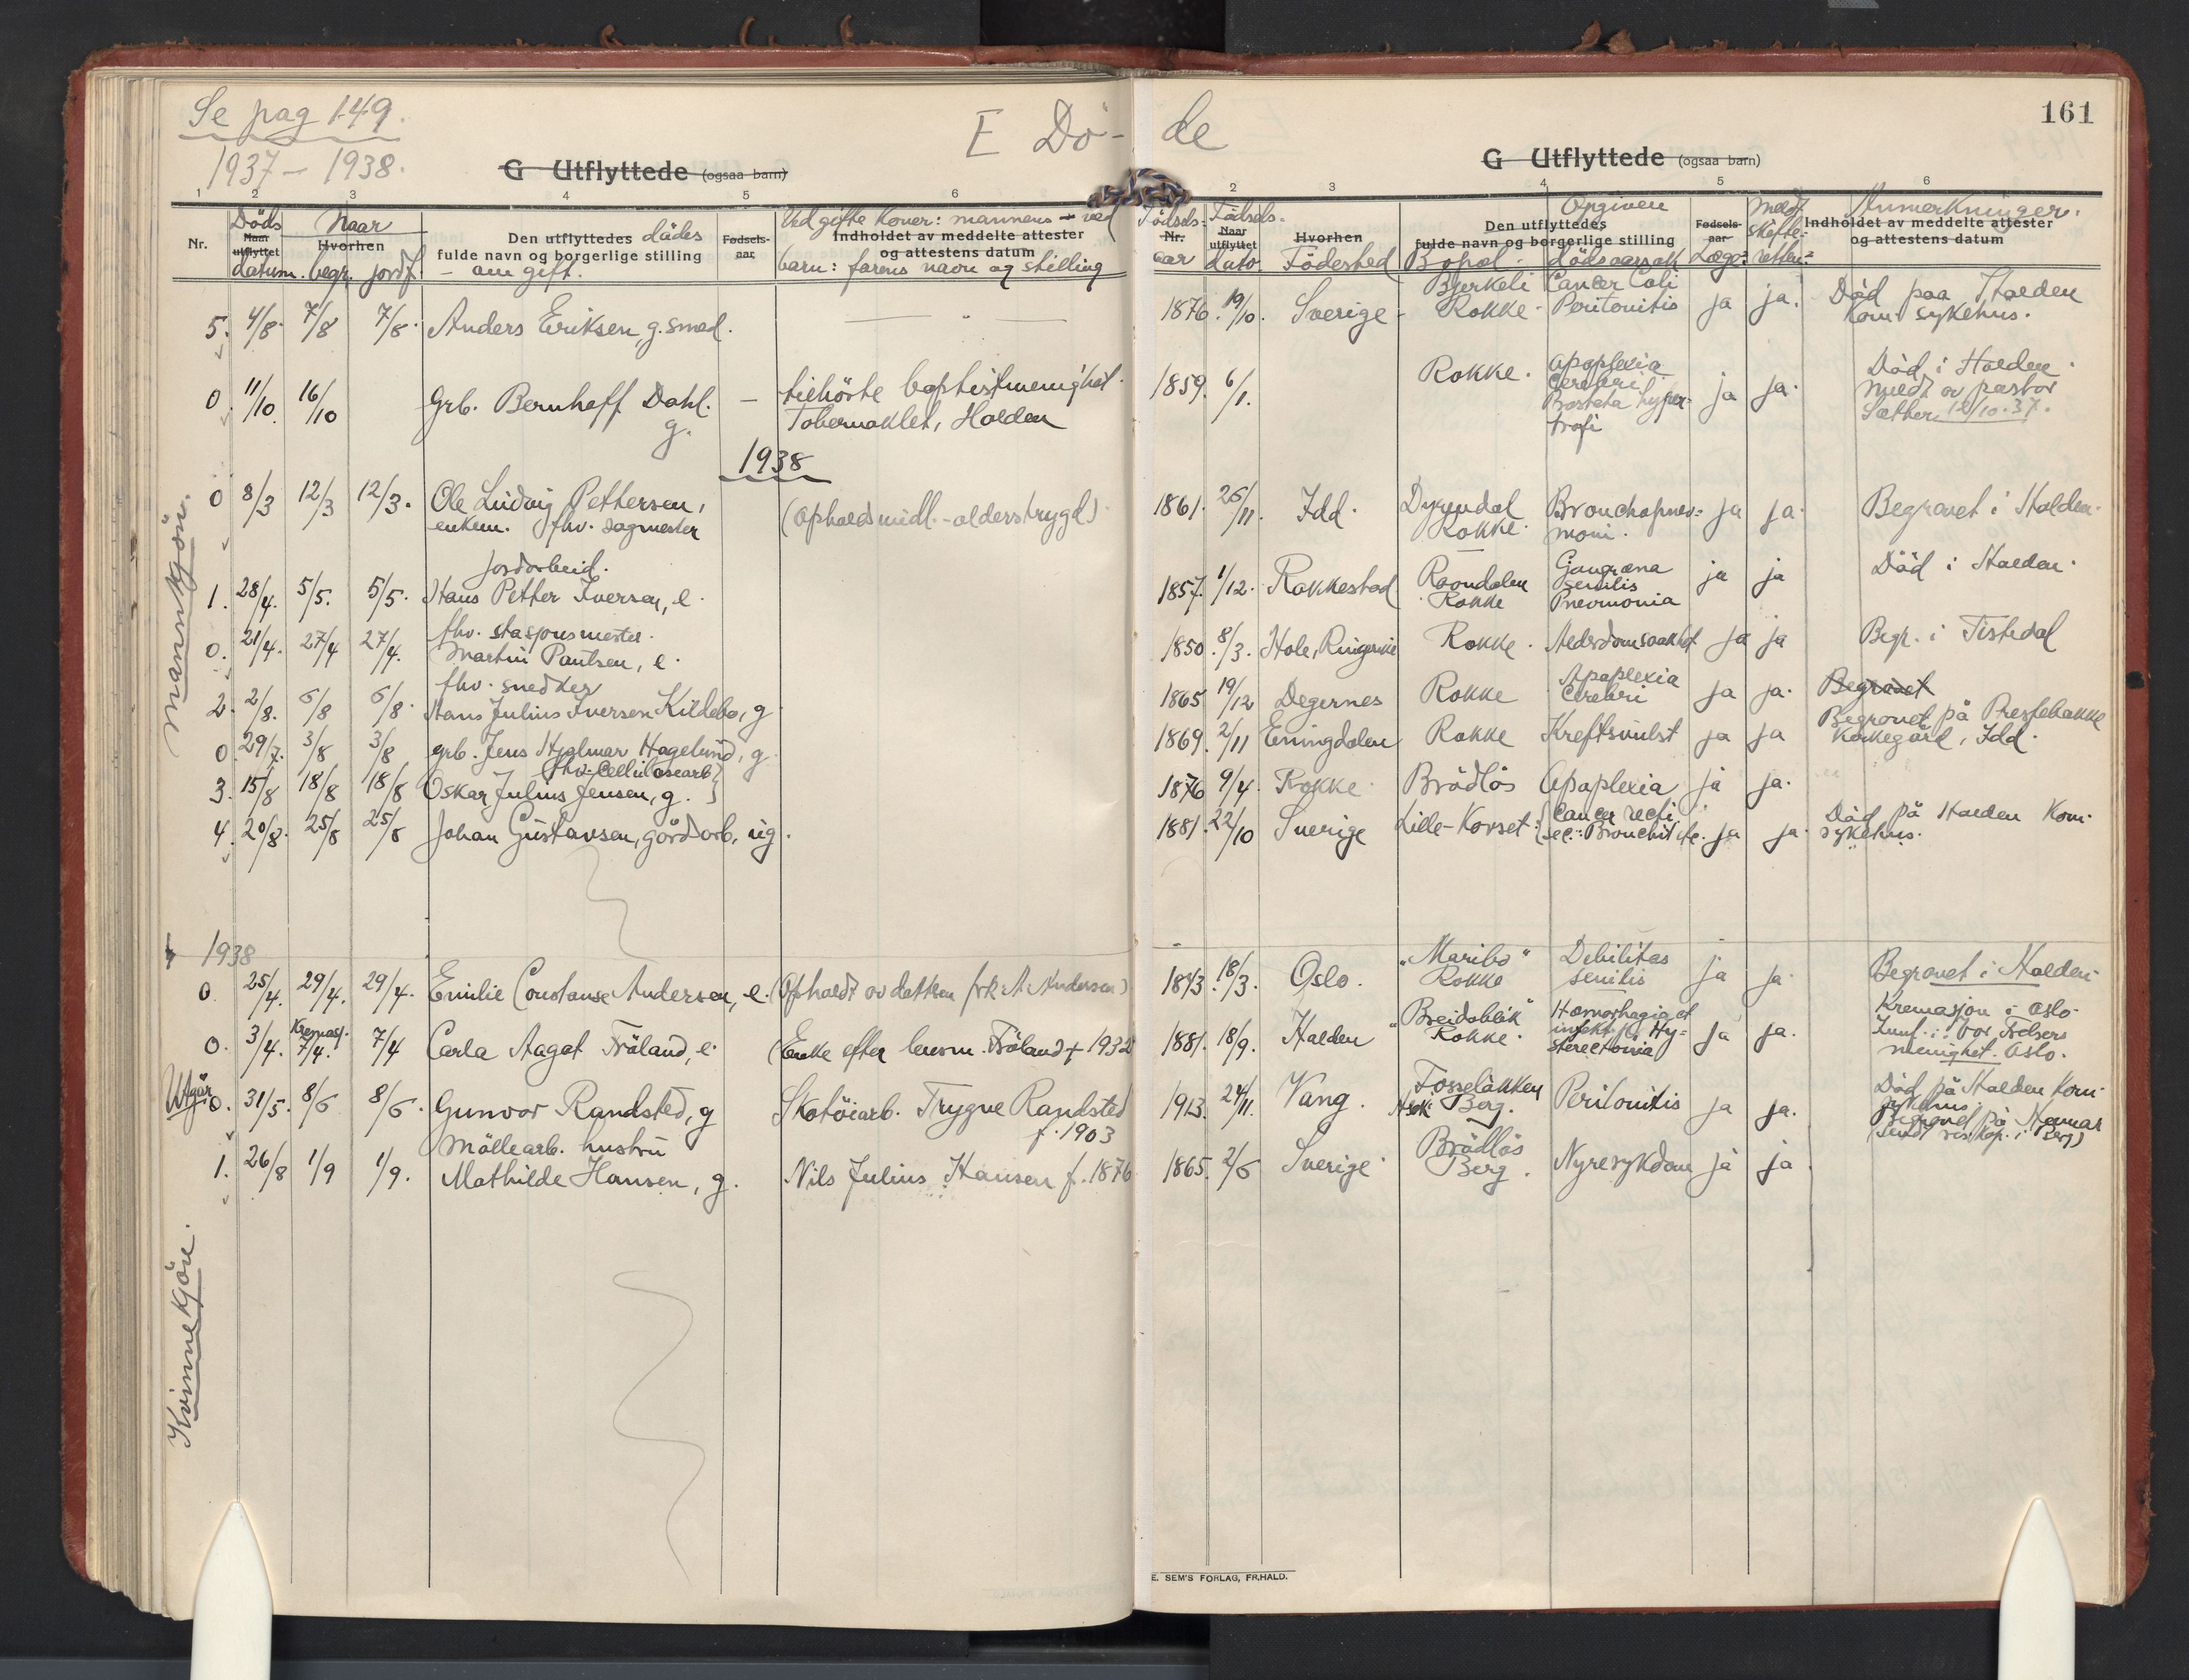 Se pag 149.
1937 – 1938.
E Dø-de
161
G Utflyttede (ogsaa barn)
G Utflyttede (ogsaa barn)
1 2 3 4 5 6
2 3 4 5 6
Nr.
Døds Naar utflyttet datum.
Naar Hvorhen begr. jordf.
Den utflyttedes dødes
fulde navn og borgerlige stilling
– om gift.
Fødsels-
aar
Ved gifte koner: mannens – ved
Indholdet av meddelte attester
og attestens datum
barn: farens navn og stilling
Fødsels-
Nr.
aar
Fødsels-
Naar
utflyttet
dato
Hvorhen
Fødested
Den utflyttedes
fulde navn og borgerlige stilling
Bopæl
Opgiven
dødsaarsak
Fødsels-
aar
Læge:
Meldt
skifte-
retten:
Anmerkninger.
Indholdet av meddelte attester
og attestens datum
Mannkjön.
5. 4/8. 7/8 7/8. Anders Eriksen, g. smed. — " — 1876. 19/10. Sverige - Bjerkeli Rokke - Cancer Coli Peritonitis ja ja. Död paa Halden Kom. sykehus.
0. 11/10. 16/10 Grb. Bernhoff Dahl. g. — tilhörte baptistmenighet. Tabernaklet, Halden 1859. 6/1. Rokke. Apoplexia Cerebri Prostata hypertrofi ja ja. Död i Halden. Meldt av pastor Sæther 12/10.37.
1938
0 8/3 12/3 12/3. Ole Ludvig Pettersen, enkem. fhv. sagmester (Opholdsmidl. - alderstrygd) 1861. 25/11. Idd. Rokke. Bronchopnevmoni. ja ja. Begravet i Halden.
Jordarbeid.
1. 28/4. 5/5. 5/5. Hans Petter Iversen, e. 1857. 1/12. Rakkestad Rokke Gangræna senilis Pnevmonia ja ja Död i Halden.
fhv. stasjonsmester.
0. 21/4. 27/4 27/4. Martin Paulsen, e. 1850. 8/3. Hole, Ringerike Rokke. Alderdomssvakhet ja ja Begr. i Tistedal
fhv. snedker
2. 2/8. 6/8 6/8. Hans Julius Iversen Kildebo, g 1865 19/12 Degernes Rokke Apoplexia Cerebri ja ja. Begravet
0 29/7. 3/8 3/8 grb. Jens Hjalmar Hagelund, g 1869. 2/11 Enningdalen Rokke Kreftsvulst ja ja Begravet på Prestebakke kirkegård, Idd.
fhv. Cellulosearb.
3. 15/8 18/8 18/8 Oskar Julius Jensen, g. 1876 9/4. Rokke. Brödlös Apoplexia ja ja.
4. 20/8. 25/8 25/8 Johan Gustavsen, gårdarb. ug. 1881. 22/10 Sverige Lille-Korset. Cancer recti, sec.: Bronchit ja ja. Död på Halden Kom. sykehus.
1938
Kvinnekjön.
0 25/4. 29/4. 29/4. Emilie Constanse Andersen, e. (Opholdt av datteren frk. A. Andersen) 1843. 18/3. Oslo. "Maribo" Rokke Debilitas senilis ja ja. Begravet i Halden.
0. 3/4. Kremasj. 7/4. 7/4 Carla Aagot Fröland, e. (Enke efter lensm. Fröland † 1932 1881. 18/9. Halden "Breidablik" Rokke. ja ja. Kremasjon i Oslo. Vor Frelsers menighet. Oslo.
Utgår 0. 31/5. 8/6 8/6. Gunvor Randsted, g Skotöiarb. Trygve Randsted f. 1903 1913. 24/11. Vang. Fosselökken Berg. Peritonitis ja ja. Död på Halden Kom. sykehus. Begravet på Hamar
Möllearb. hustru
1. 26/8 1/9 1/9. Mathilde Hansen, g. Nils Julius Hansen f. 1876 1865. 2/6 Sverige Brödlös Berg. Nyresykdom ja ja
E. SEM'S FORLAG, FR.HALD.